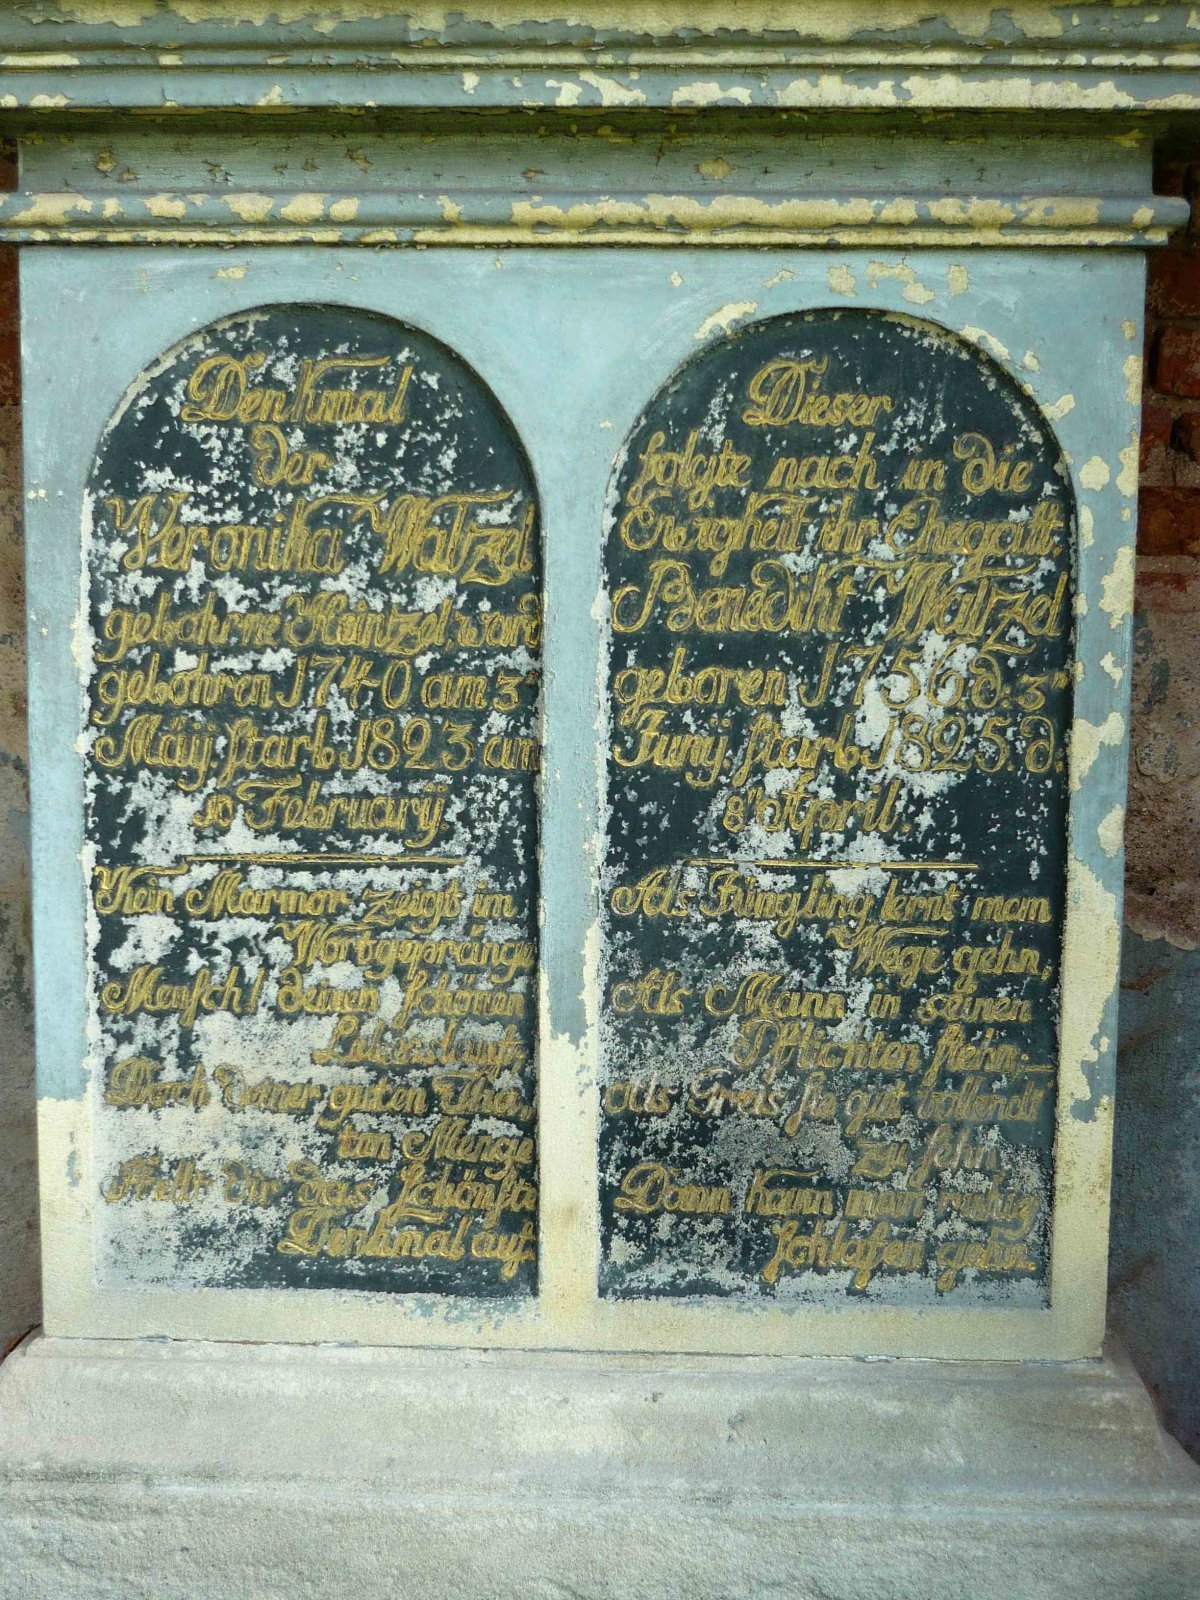 Denkmal
der
Veronika Watzel
gebohrne Heintzel, ward
gebohren 1740 am 3ᵗ
Mäÿ. starb. 1823 am
10 Februarÿ.
Kein Marmor zeigt im
Wortgepränge
Mensch! deinen schönen
Lebenslauf;
Doch deiner guten Tha„
ten Menge
stellt dir das schönste
Denkmal auf.
Dieser
folgte nach in die
Ewigkeit ihr Ehegatt.
Benedikt Watzel
geboren 1756. d. 3ᵗ
Junÿ. starb. 1825. d.
8ᵗ April.
Als Jüngling lernt man
Wege gehn,
Als Mann in seinen
Pflichten stehn;
Als Greis sie gut vollendt
zu sehn,
Dann kann man ruhig
schlafen gehn.